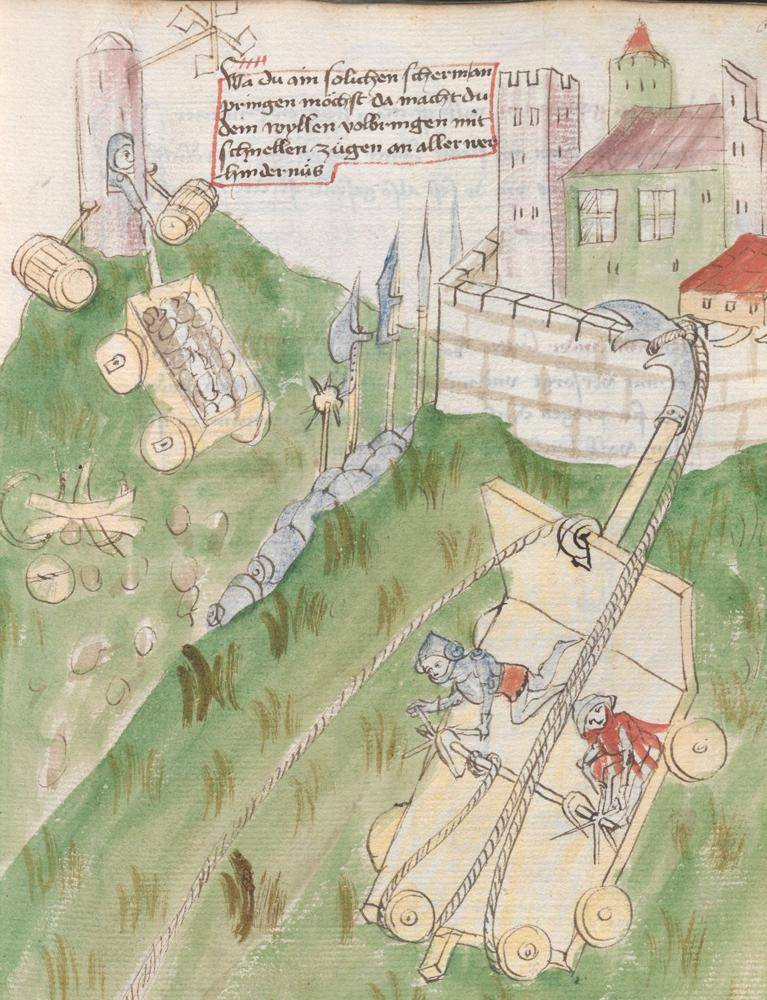 Wa du ain solichen scherm an
pringen möchst da macht du
dein wyllen volbringen mit
schnellen zügen an aller ver
hindernüs